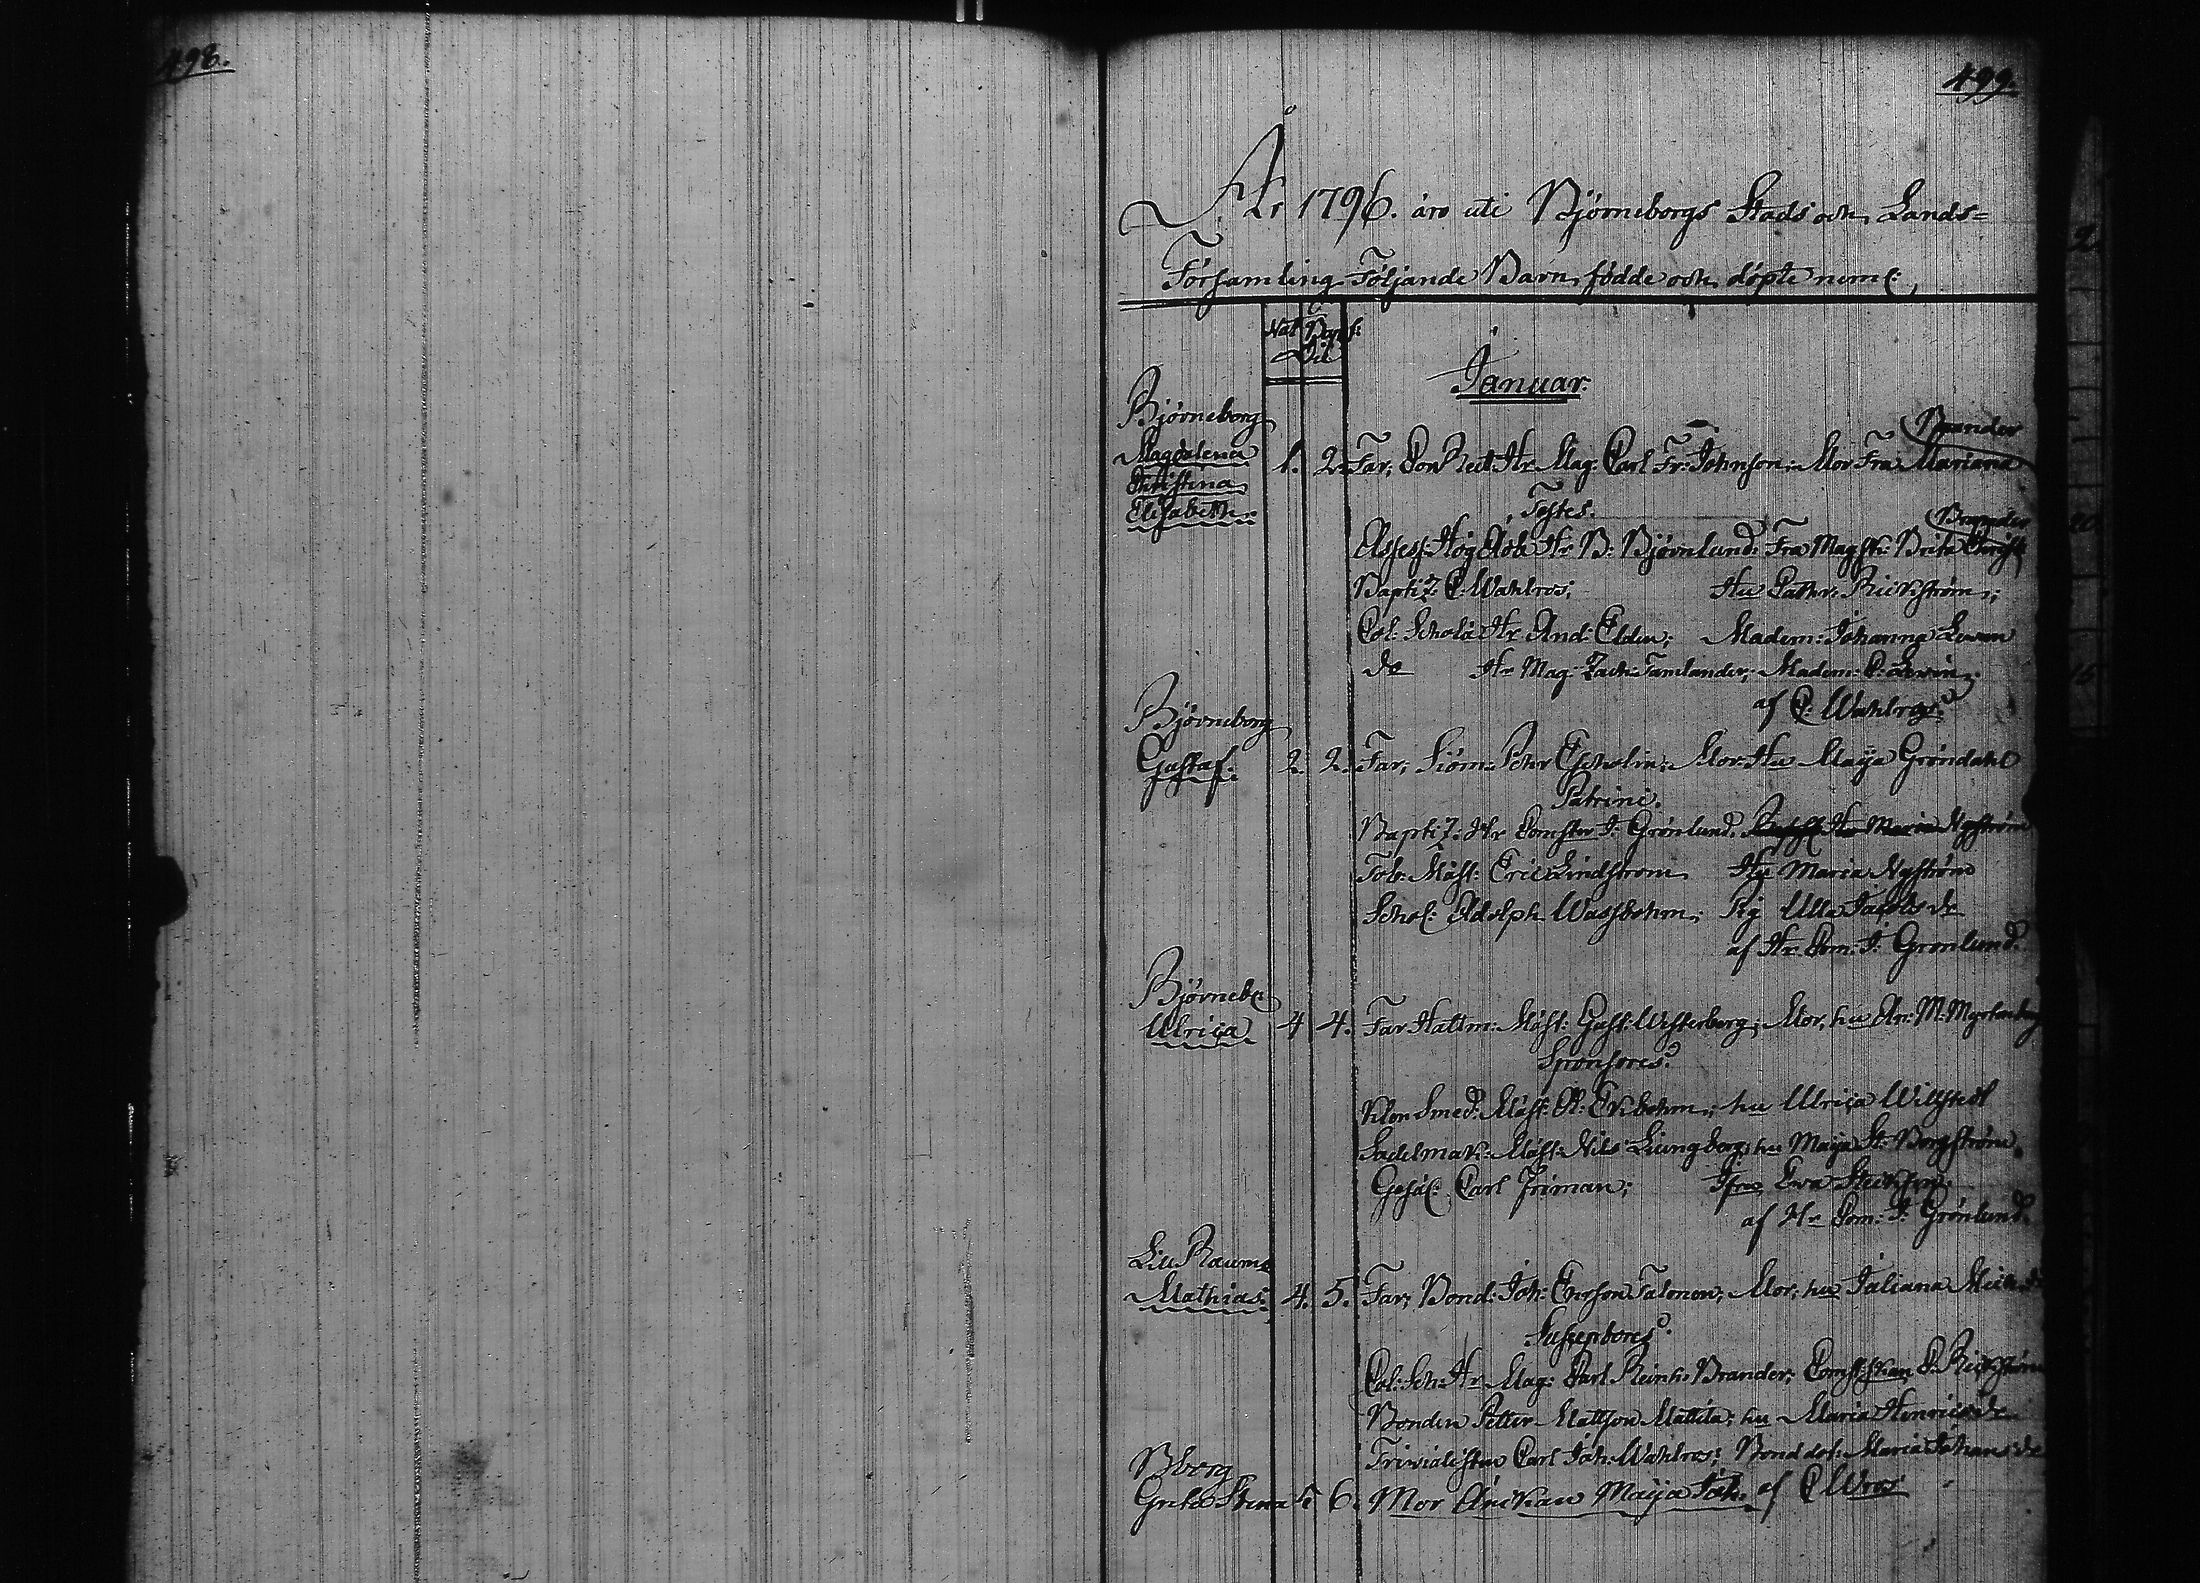 498.
499.
År 1796. äro uti Björneborgs Stads och Lands=
Församling Följande Barn, födde och döpte neml:
Nat Bapt:
Die
Januar.
Björneborg
Magdalena
Christina
Elisabeth.
1. 2. Far, Con Rect: Hr Mag: Carl Fr: Johnson; Mor Fru Mariana
Brander
Testes.
Assess: Hög Ädle Hr B: Björnlund; Fru Magsk: Brita Christ
Brander
Baptiz: C: Wahlros; Hu Cathr: Rickström;
Col: Scholæ Hr And: Elden; Madem: Johanna Lewan
do Hr Mag: Zach: Tamlander; Madem: C: Lewin.
af C: Wahlros.
Björneborg
Gustaf.
2. 2. Far; Siöm: Pehr Ekholin; Mor: Hu Maija Gröndahl
Patrini.
Baptiz: Hr Comster J: Grönlund. Hu Maria Nyström
Tob: Mäst: Eric Lindstrom Hu Maria Nyström
Schol: Adolph Wassbohm; Pig Ulla Jacobsdr
af Hr Com: J: Grönlund.
Björneb:
Ulrica
4 4. Far Hattm: Mäst: Gust: Westerberg; Mor, hu An: M: Myrtenberg
Sponsores.
Klen Smed: Mäst: A: Ekbohm; hu Ulrica Willstedt
Sadelmak: Mäst: Nils Liungberg; hu Maija St: Bergström.
Gesäl: Carl Friman; Jfru Ewa
af Hr Com: J: Grönlund.
Lill Raumo
Mathias.
4. 5. Far; Bond: Joh: Ersson Talonen; Mor; hu Juliana
Susceptores.
Col: Sch: Hr Mag: Carl Reinh: Brander; Comst:skan C: Rickström
Bonden Petter Mattson Mattila; hu Maria Henricsdr
Trivialisten Carl Joh: Wahlros; Bond dot: Maria Johansdr
Bborg
Greta Stina 5 6. Mor Änckan Maija Joh. af C Wros